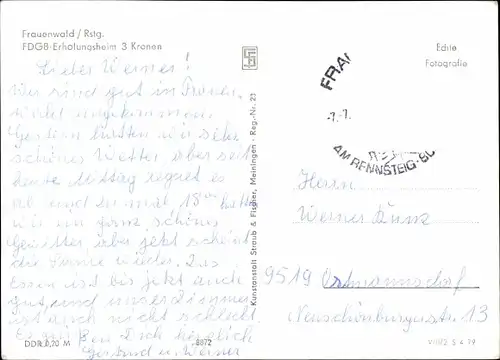 Frauenwald / Rstg.
FDGB-Erholungsheim 3 Kronen
Lieber Werner!
Wir sind gut in Frauen-
wald angekommen.
Gestern hatten wir sehr
schönes Wetter aber seit
heute Mittag regnet es
ab und zu mal 18°° hatten
wir ein ganz schönes
Gewitter, aber jetzt scheint
die Sonne wieder. Das
Essen ist bis jetzt auch
gut, und unser Zimmer
ist auch nicht schlecht.
Es grüßen Dich herzlich
Gertrud u. Werner
DDR 0,20 M
8872
Kunstanstalt Straub & Fischer, Meiningen - Reg.-Nr. 23
Echte
Fotografie
FRA
-7.-7.
AM RENNSTEIG·60
Herrn
Werner Kunz
9519 Ortmannsdorf
Neuschönburgerstr. 13
V1172 S 4 19